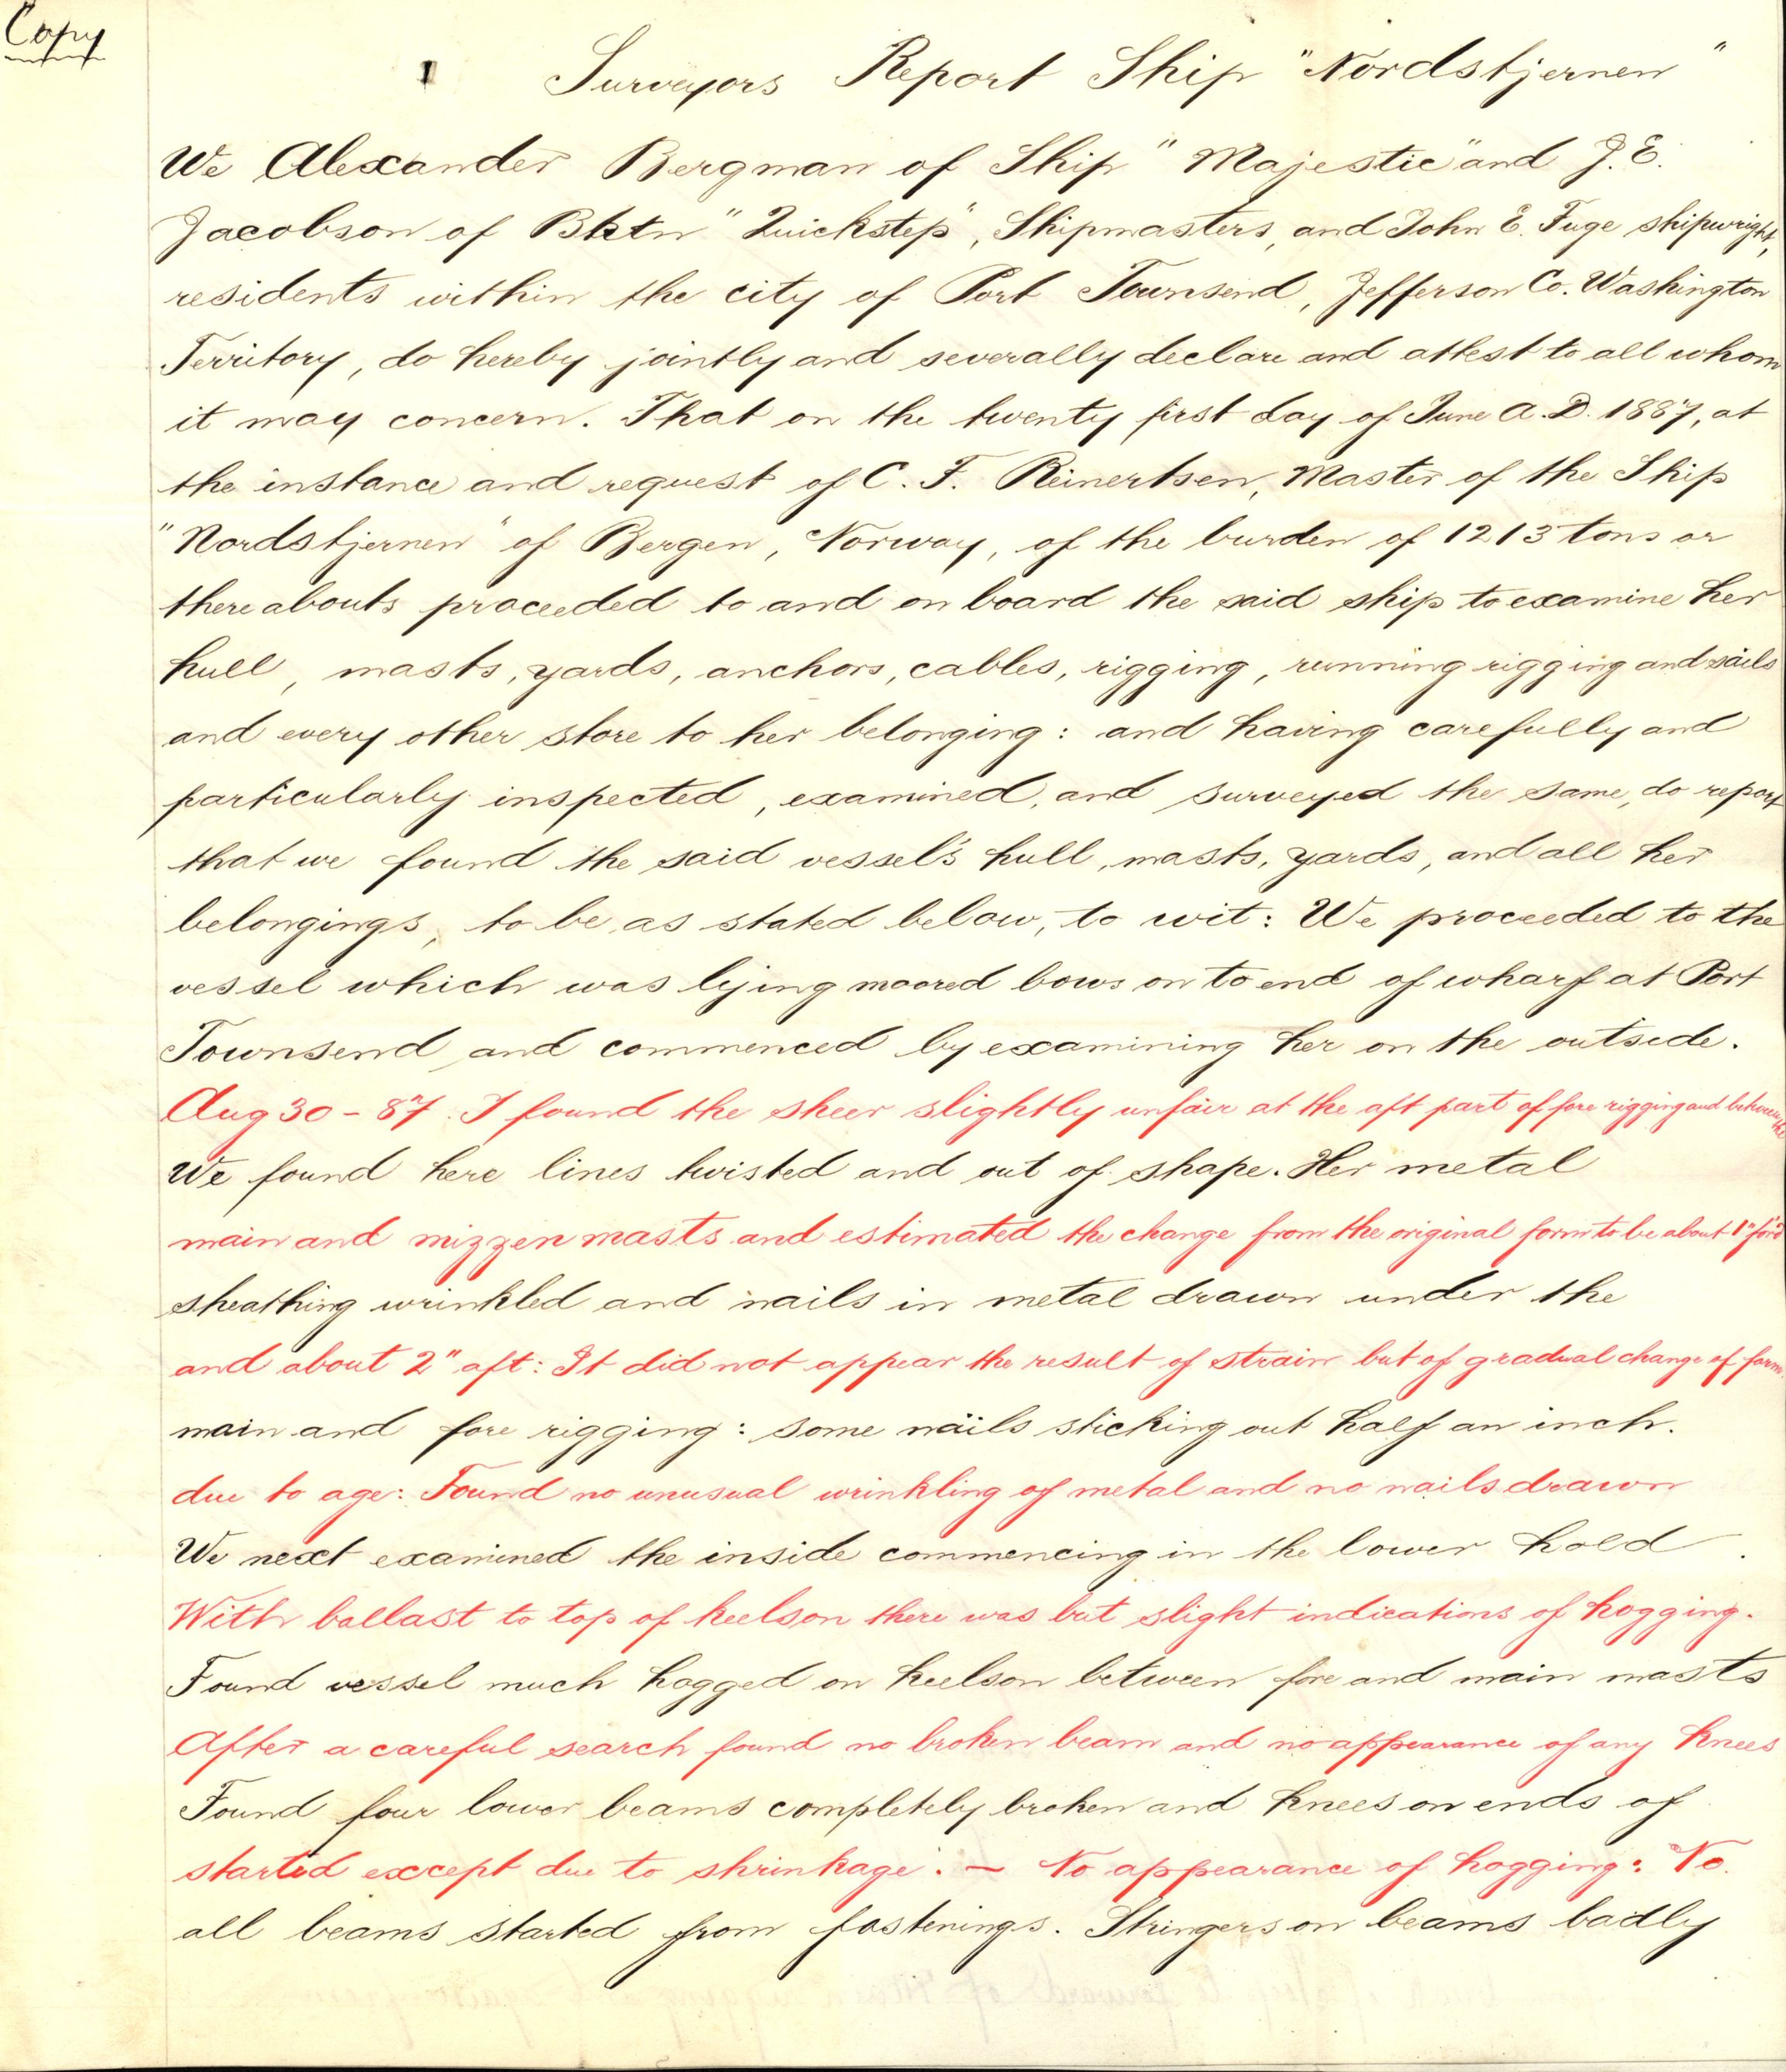 Copy
Surveyors Report Ship "Nordstjernen"
We Alexander Bergman of Ship "Majestic" and J. E.
Jacobson of Bktn "Quickstep", Shipmasters, and John E. Fuge shipwright,
residents within the city of Port Townsend, Jefferson Co. Washington
Territory, do hereby jointly and severally declare and attest to all whom
it may concern. That on the twenty first day of June A.D. 1887, at
the instance and request of C. F. Reinertsen, Master of the Ship
"Nordstjernen" of Bergen, Norway, of the burden of 1213 tons or
thereabouts proceeded to and on board the said ship to examine her
hull, masts, yards, anchors, cables, rigging, running rigging and sails
and every other store to her belonging: and having carefully and
particularly inspected, examined, and surveyed the same, do report
that we found the said vessel's hull, masts, yards, and all her
belongings, to be as stated below, to wit: We proceeded to the
vessel which was lying moored bows on to end of wharf at Port
Townsend and commenced by examining her on the outside.
Aug 30 - 87. I found the sheer slightly unfair at the aft part of fore rigging and between the
We found here lines twisted and out of shape. Her metal
main and mizzen masts and estimated the change from the original form to be about 1" for'd
sheathing wrinkled and nails in metal drawn under the
and about 2" aft: It did not appear the result of strain but of gradual change of form
main and fore rigging: some nails sticking out half an inch.
due to age: Found no unusual wrinkling of metal and no nails drawn
We next examined the inside commencing in the lower hold.
With ballast to top of keelson there was but slight indications of hogging.
Found vessel much hogged on keelson between fore and main masts
After a careful search found no broken beam and no appearance of any knees
Found four lower beams completely broken and knees on ends of
started except due to shrinkage. — No appearance of hogging: No.
all beams started from fastenings. Stringers on beams badly